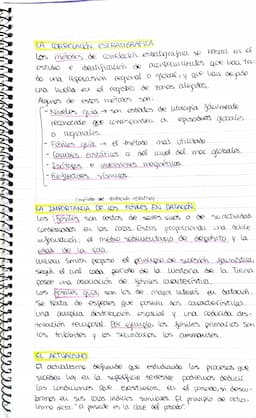 LA CORRELACIÓN ESTRATIGRÁFICA
Los métodos de correlación estratigráfica se basan en el
estudio e identificación de acontecimientos que han te
do una repercusión regional o global, y que han dejado
una huella en el registro de zonas alejadas.
Algunos de estos métodos son:
- Niveles guía → son estratos de litología fácilmente
reconocible que corresponden a episodios globales
o regionales.
- Fósiles guía → el método más utilizado
- Cambios eustáticos o del nivel del mar globales.
- Isótopos e inversiones magnéticas.
- Reflectores sísmicos.
(método de datación relativa)
LA IMPORTANCIA DE LOS FÓSILES EN DATACIÓN.
Los fósiles son restos de seres vivos o de su actividad
contenidos en las rocas. Estos proporcionan una doble
información: el medio sedimentario de depósito y la
edad de la roca.
William Smith propuso el principio de sucesión faunística,
según el cual cada período de la historia de la Tierra
posee una asociación de fósiles característica.
Los fósiles guía son los de mayor interés en datación.
Se trata de especies que poseen dos características:
una amplia distribución espacial y una reducida dis-
tribución temporal. Por ejemplo, los fósiles primarios son
los trilobites y los secundarios los ammonites.
EL ACTUALISMO
El actualismo defiende que estudiando los procesos que
suceden hoy en la superficie terrestre podremos deducir
las condiciones que existieron en el pasado, si descu-
brimos en sus rocas indicios similares. El principio de actua-
lismo dicta: "El presente es la clave del pasado".